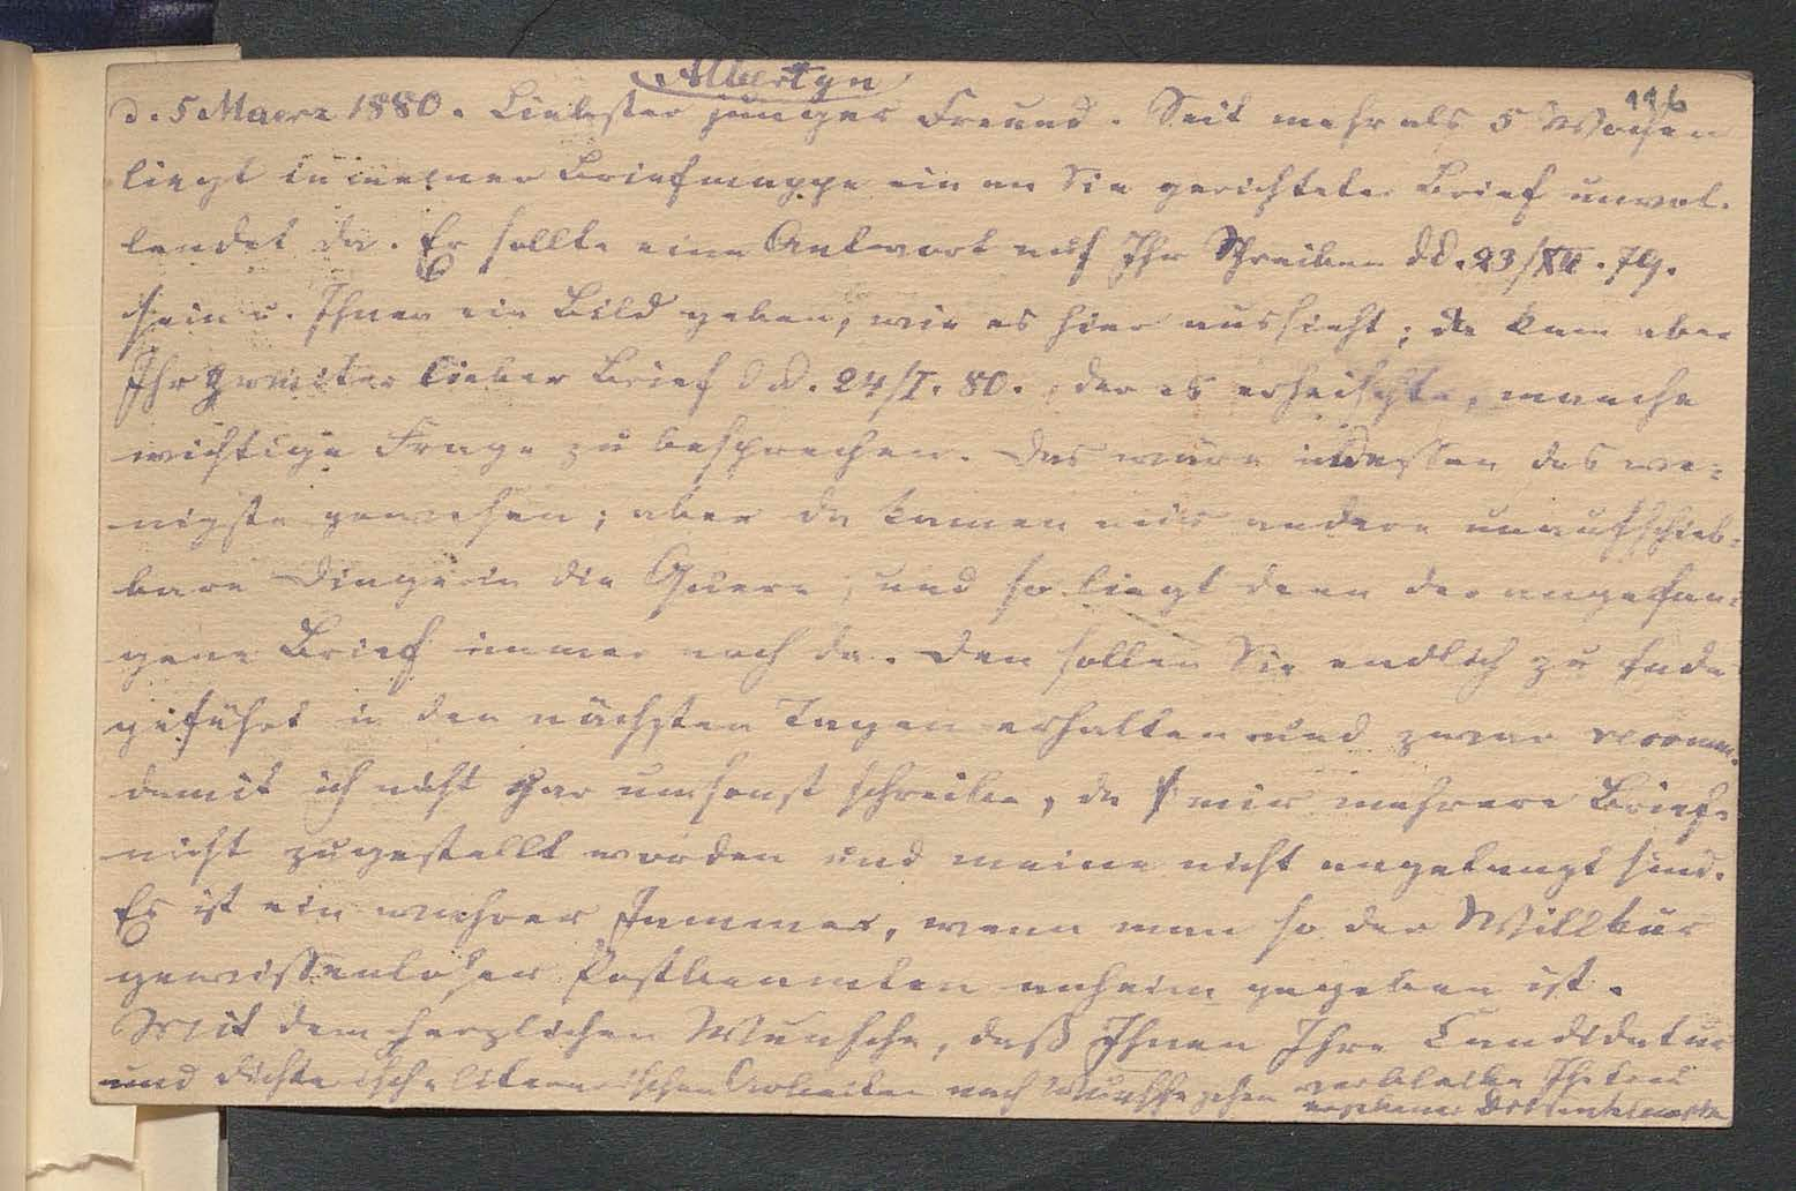 Albertyn
116
d. 5 Maerz 1880. Liebster junger Freund. Seit mehr als 5 Wochen
liegt in meiner Briefmappe ein an Sie gerichteter Brief unvol-
lendet da. Er sollte eine Antwort auf Ihr Schreiben dd. 23/XII. 79.
sein u. Ihnen ein Bild geben, wie es hier aussieht; da kam aber
Ihr zweiter lieber Brief dd. 24/I. 80., der es erheischte, manche
wichtige Frage zu besprechen. Das wäre indessen das we=
nigste gewesen; aber da kamen mir andere unaufschieb=
bare Dinge in die Quere, und so liegt denn der angefan=
gene Brief immer noch da. Den sollen Sie endlich zu Ende
geführt in den nächsten Tagen erhalten und zwar recomm.
damit ich nicht gar umsonst schreibe, da mir mehrere Briefe
nicht zugestellt worden und meine nicht angelangt sind.
Es ist ein wahrer Jammer, wenn man so der Willkür
gewissenloser Postbeamten anheim gegeben ist.
Mit dem herzlichen Wunsche, daß Ihnen Ihre Candidatur
und dichterisch-literarischen Arbeiten nach Wunsche gehen verbleibe Ihr treu
ergebener